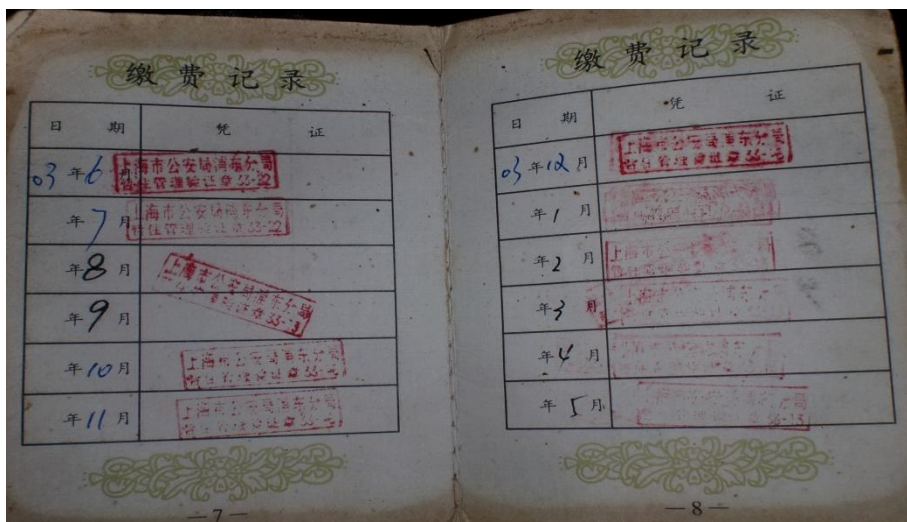 缴费记录
日期 凭证
03年6月 上海市公安局浦东分局
暂住管理验证章33-22
年7月 上海市公安局浦东分局
暂住管理验证章33-22
年8月
上海市公安局浦东分局
年9月
年10月 上海市公安局浦东分局
暂住管理验证章33-
年11月 上海市公安局浦东分局
暂住管理验证章33-
—7—
缴费记录
日期 凭证
03年12月 上海市公安局浦东分局
年1月
年2月
年3月
年4月
年5月
—8—